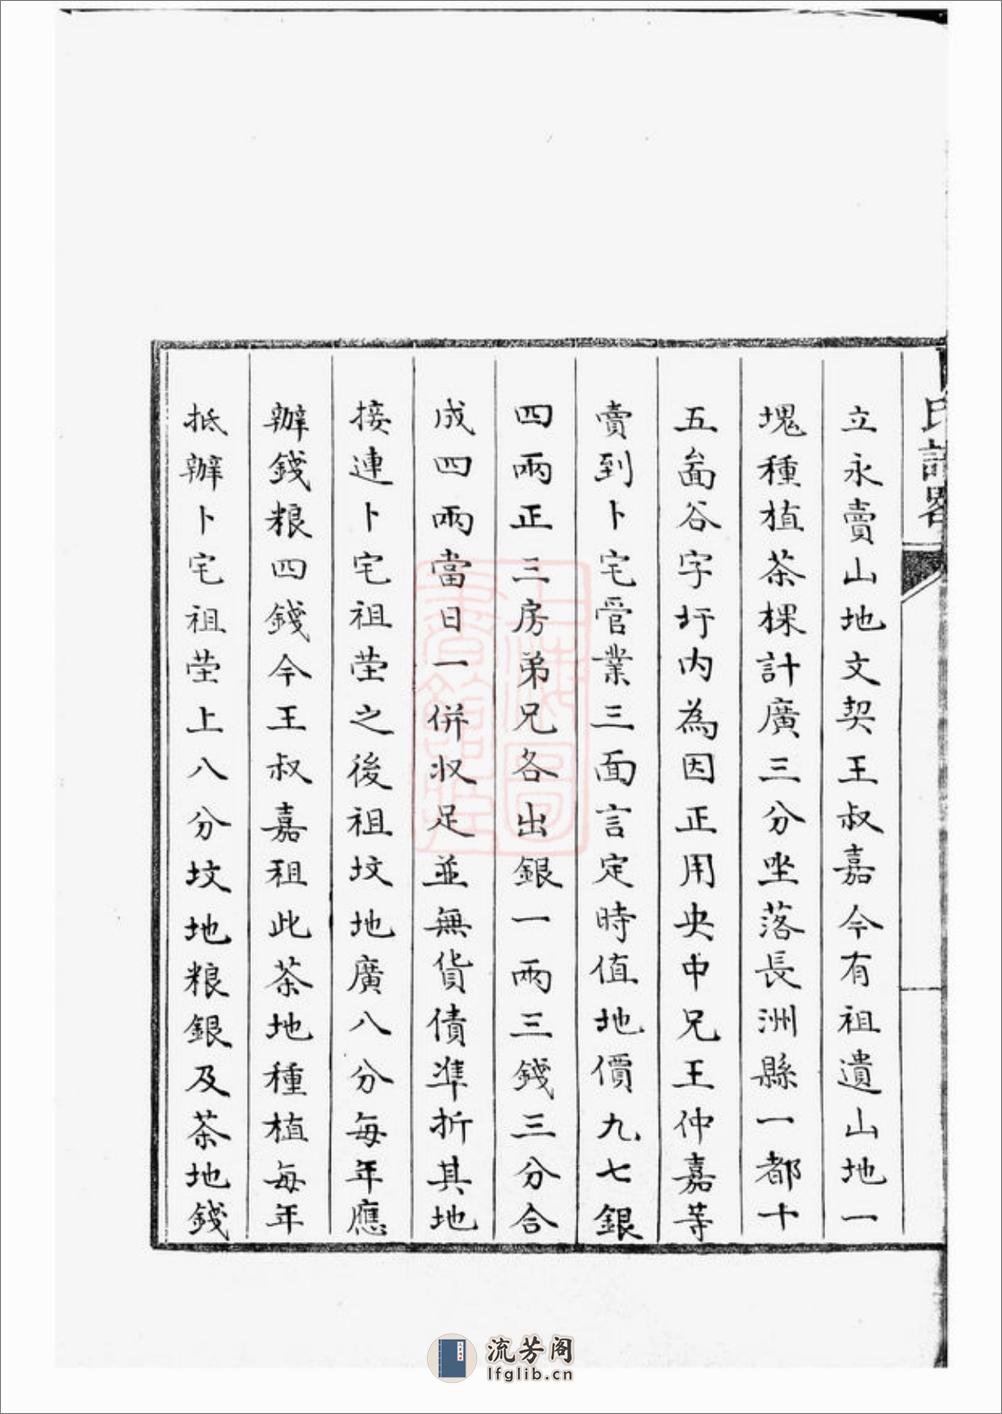 氏譜畧
立永賣山地文契王叔嘉今有祖遺山地一
塊種植茶棵計廣三分坐落長洲縣一都十
五啚谷字圩內為因正用央中兄王仲嘉等
賣到卜宅管業三面言定時值地價九七銀
四兩正三房弟兄各出銀一兩三錢三分合
成四兩當日一併收足並無貨債準折其地
接連卜宅祖茔之後祖坟地廣八分每年應
辦錢粮四錢今王叔嘉租此茶地種植每年
抵辦卜宅祖茔上八分坟地粮銀及茶地錢
上海圖書館藏
流芳阁
lfglib.cn